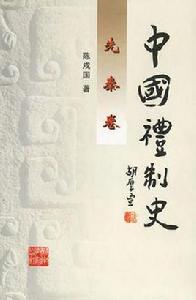 中國禮制史
先秦卷
陈戍国 著